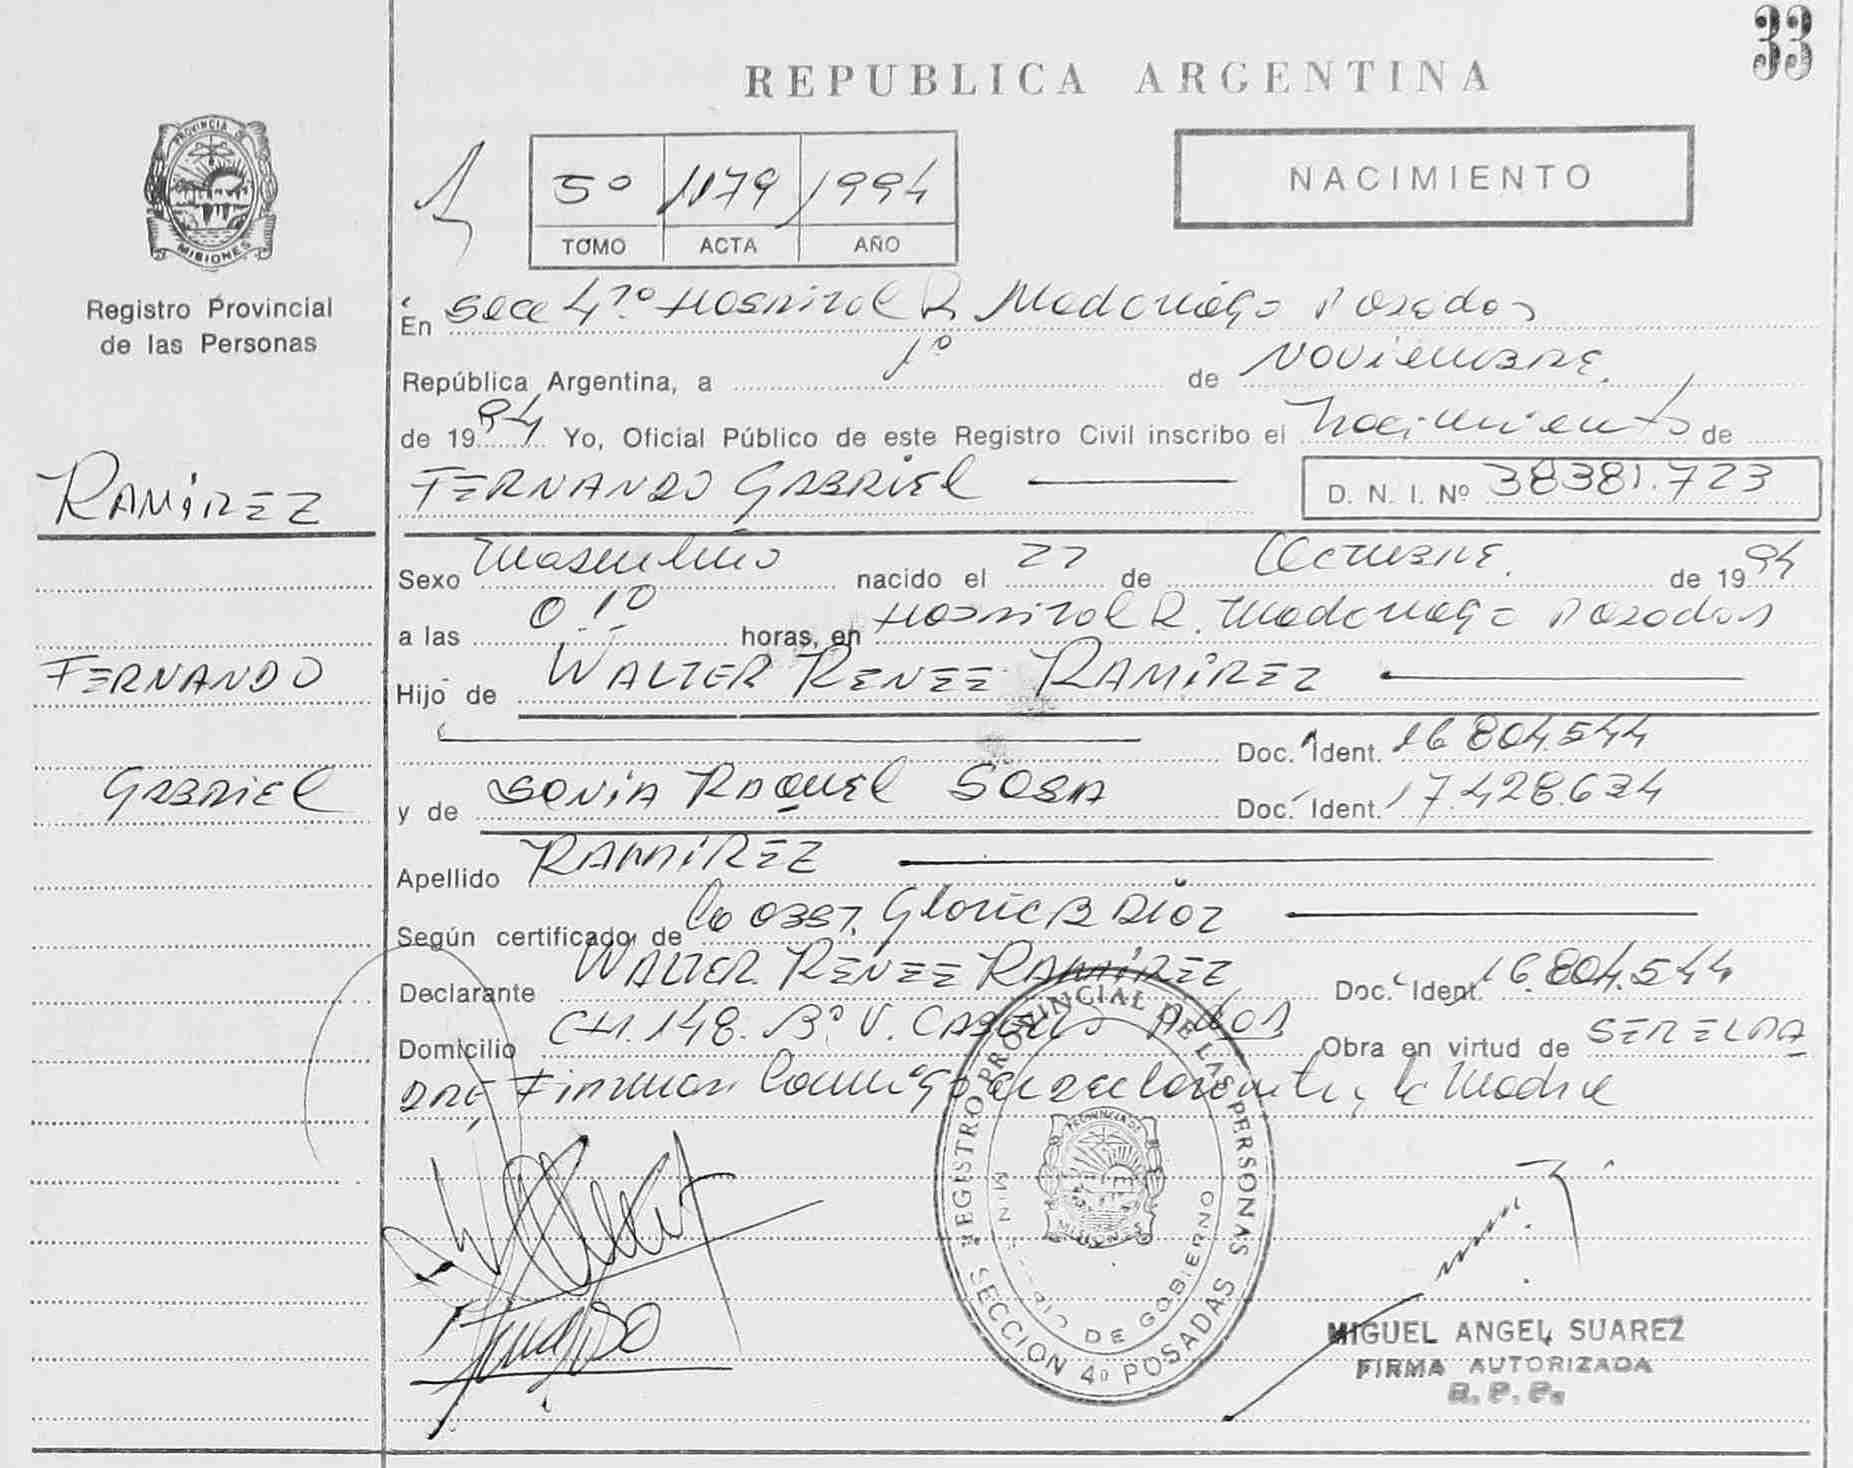 33
REPUBLICA ARGENTINA
PROVINCIA DE MISIONES
Registro Provincial de las Personas
5º 1179 1994
TOMO ACTA AÑO
NACIMIENTO
En Secc 4ta Hospital R. Madariaga Posadas
República Argentina, a 1º de Noviembre
de 1994 Yo, Oficial Público de este Registro Civil inscribo el nacimiento de
RAMÍREZ FERNANDO GABRIEL D. N. I. Nº 38381.723
Sexo Masculino nacido el 27 de Octubre de 1994
a las 0.10 horas, en Hospital R. Madariaga Posadas
FERNANDO
Hijo de WALTER RENEE RAMÍREZ
Doc. Ident. 16.804.544
GABRIEL
y de SONIA RAQUEL SOSA Doc. Ident. 17.428.634
Apellido RAMÍREZ
Según certificado de la Obst. Gloria B Díaz
Declarante WALTER RENEE RAMÍREZ Doc. Ident. 16.804.544
Domicilio CH. 148. Bº V. Obra en virtud de SER EL PA
DRE Firman Conmigo el declarante y la Madre
REGISTRO PROVINCIAL DE LAS PERSONAS
DE GOBIERNO
PROVINCIA DE MISIONES
SECCION 4º POSADAS
MIGUEL ANGEL SUAREZ
FIRMA AUTORIZADA
R. P. P.